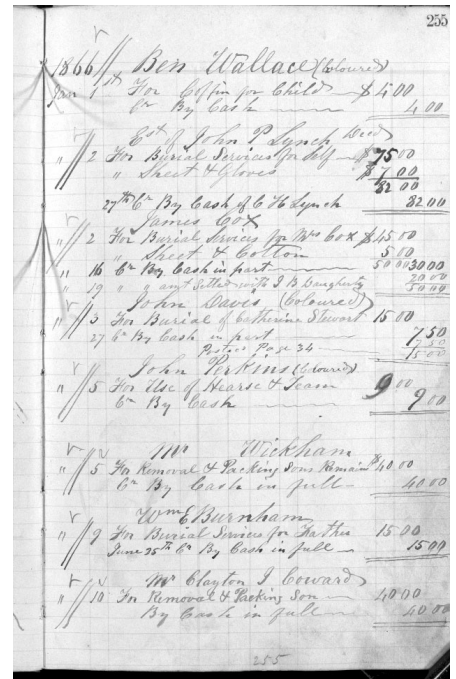 255
1866 Ben Wallace (Coloured)
Jan 1st For Coffin for Child $4 00
Cr By Cash 4 00
Est of John P Lynch Decd
" 2 For Burial Services for Self $75 00
" Sheet & Gloves $7.00
82 00
27th Cr By Cash of C H Lynch 82 00
James Cox
" 2 For Burial Services for Mrs Cox $45 00
" Sheet & Cotton 5 00
" 16 Cr By Cash in part 50 00 30 00
" 19 " " amt Settled with J B Daugherty 20 00
50 00
John Davis (Coloured)
" 3 For Burial of Catherine Stewart 15 00
27 Cr By Cash in part 7 50
Page 34 7 50
15 00
John Perkins (Coloured)
" 5 For Use of Hearse & Team 9 00
Cr By Cash 9 00
Mr Wickham
" 5 For Removal & Packing Sons Remain $40 00
Cr By Cash in full 40 00
Wm E Burnham
" 9 For Burial Services for Father 15 00
June 25th Cr By Cash in full 15 00
Mr Clayton J Coward
" 10 For Removal & Packing Son 40 00
By Cash in full 40 00
255